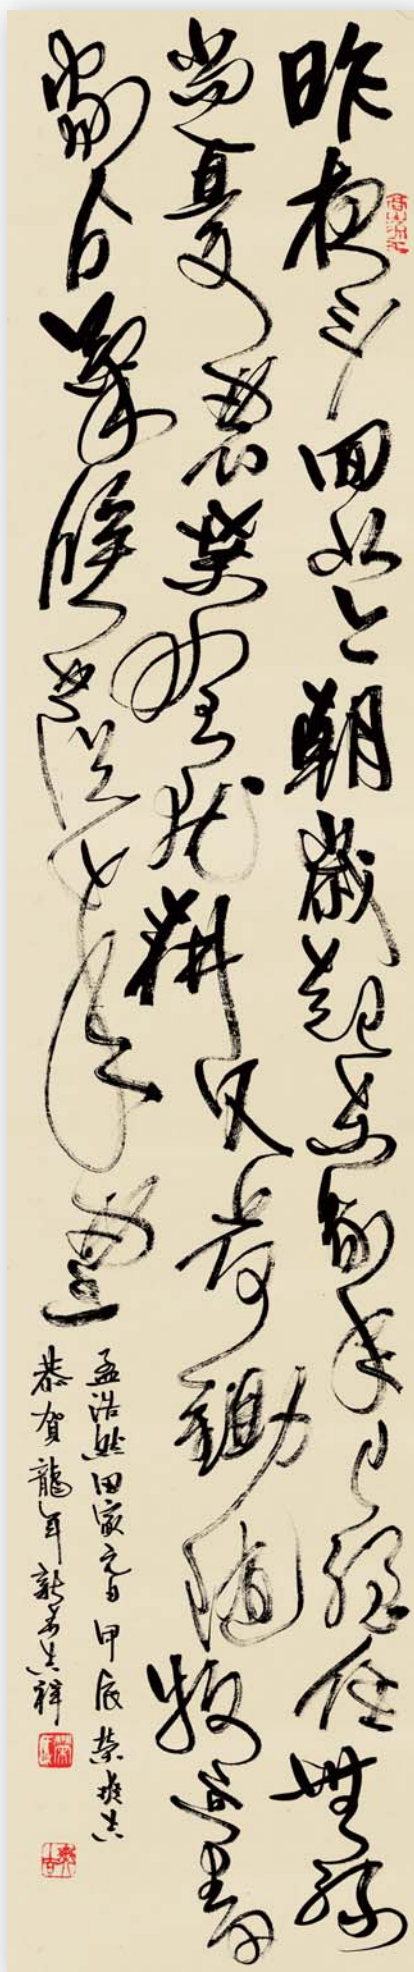 昨夜斗回北今朝歲起東我年已強仕無祿
尚憂農桑野就耕父荷鋤隨牧童田
家占氣候共說此年豐
孟浩然田家元日甲辰榮
恭賀龍年新春吉祥